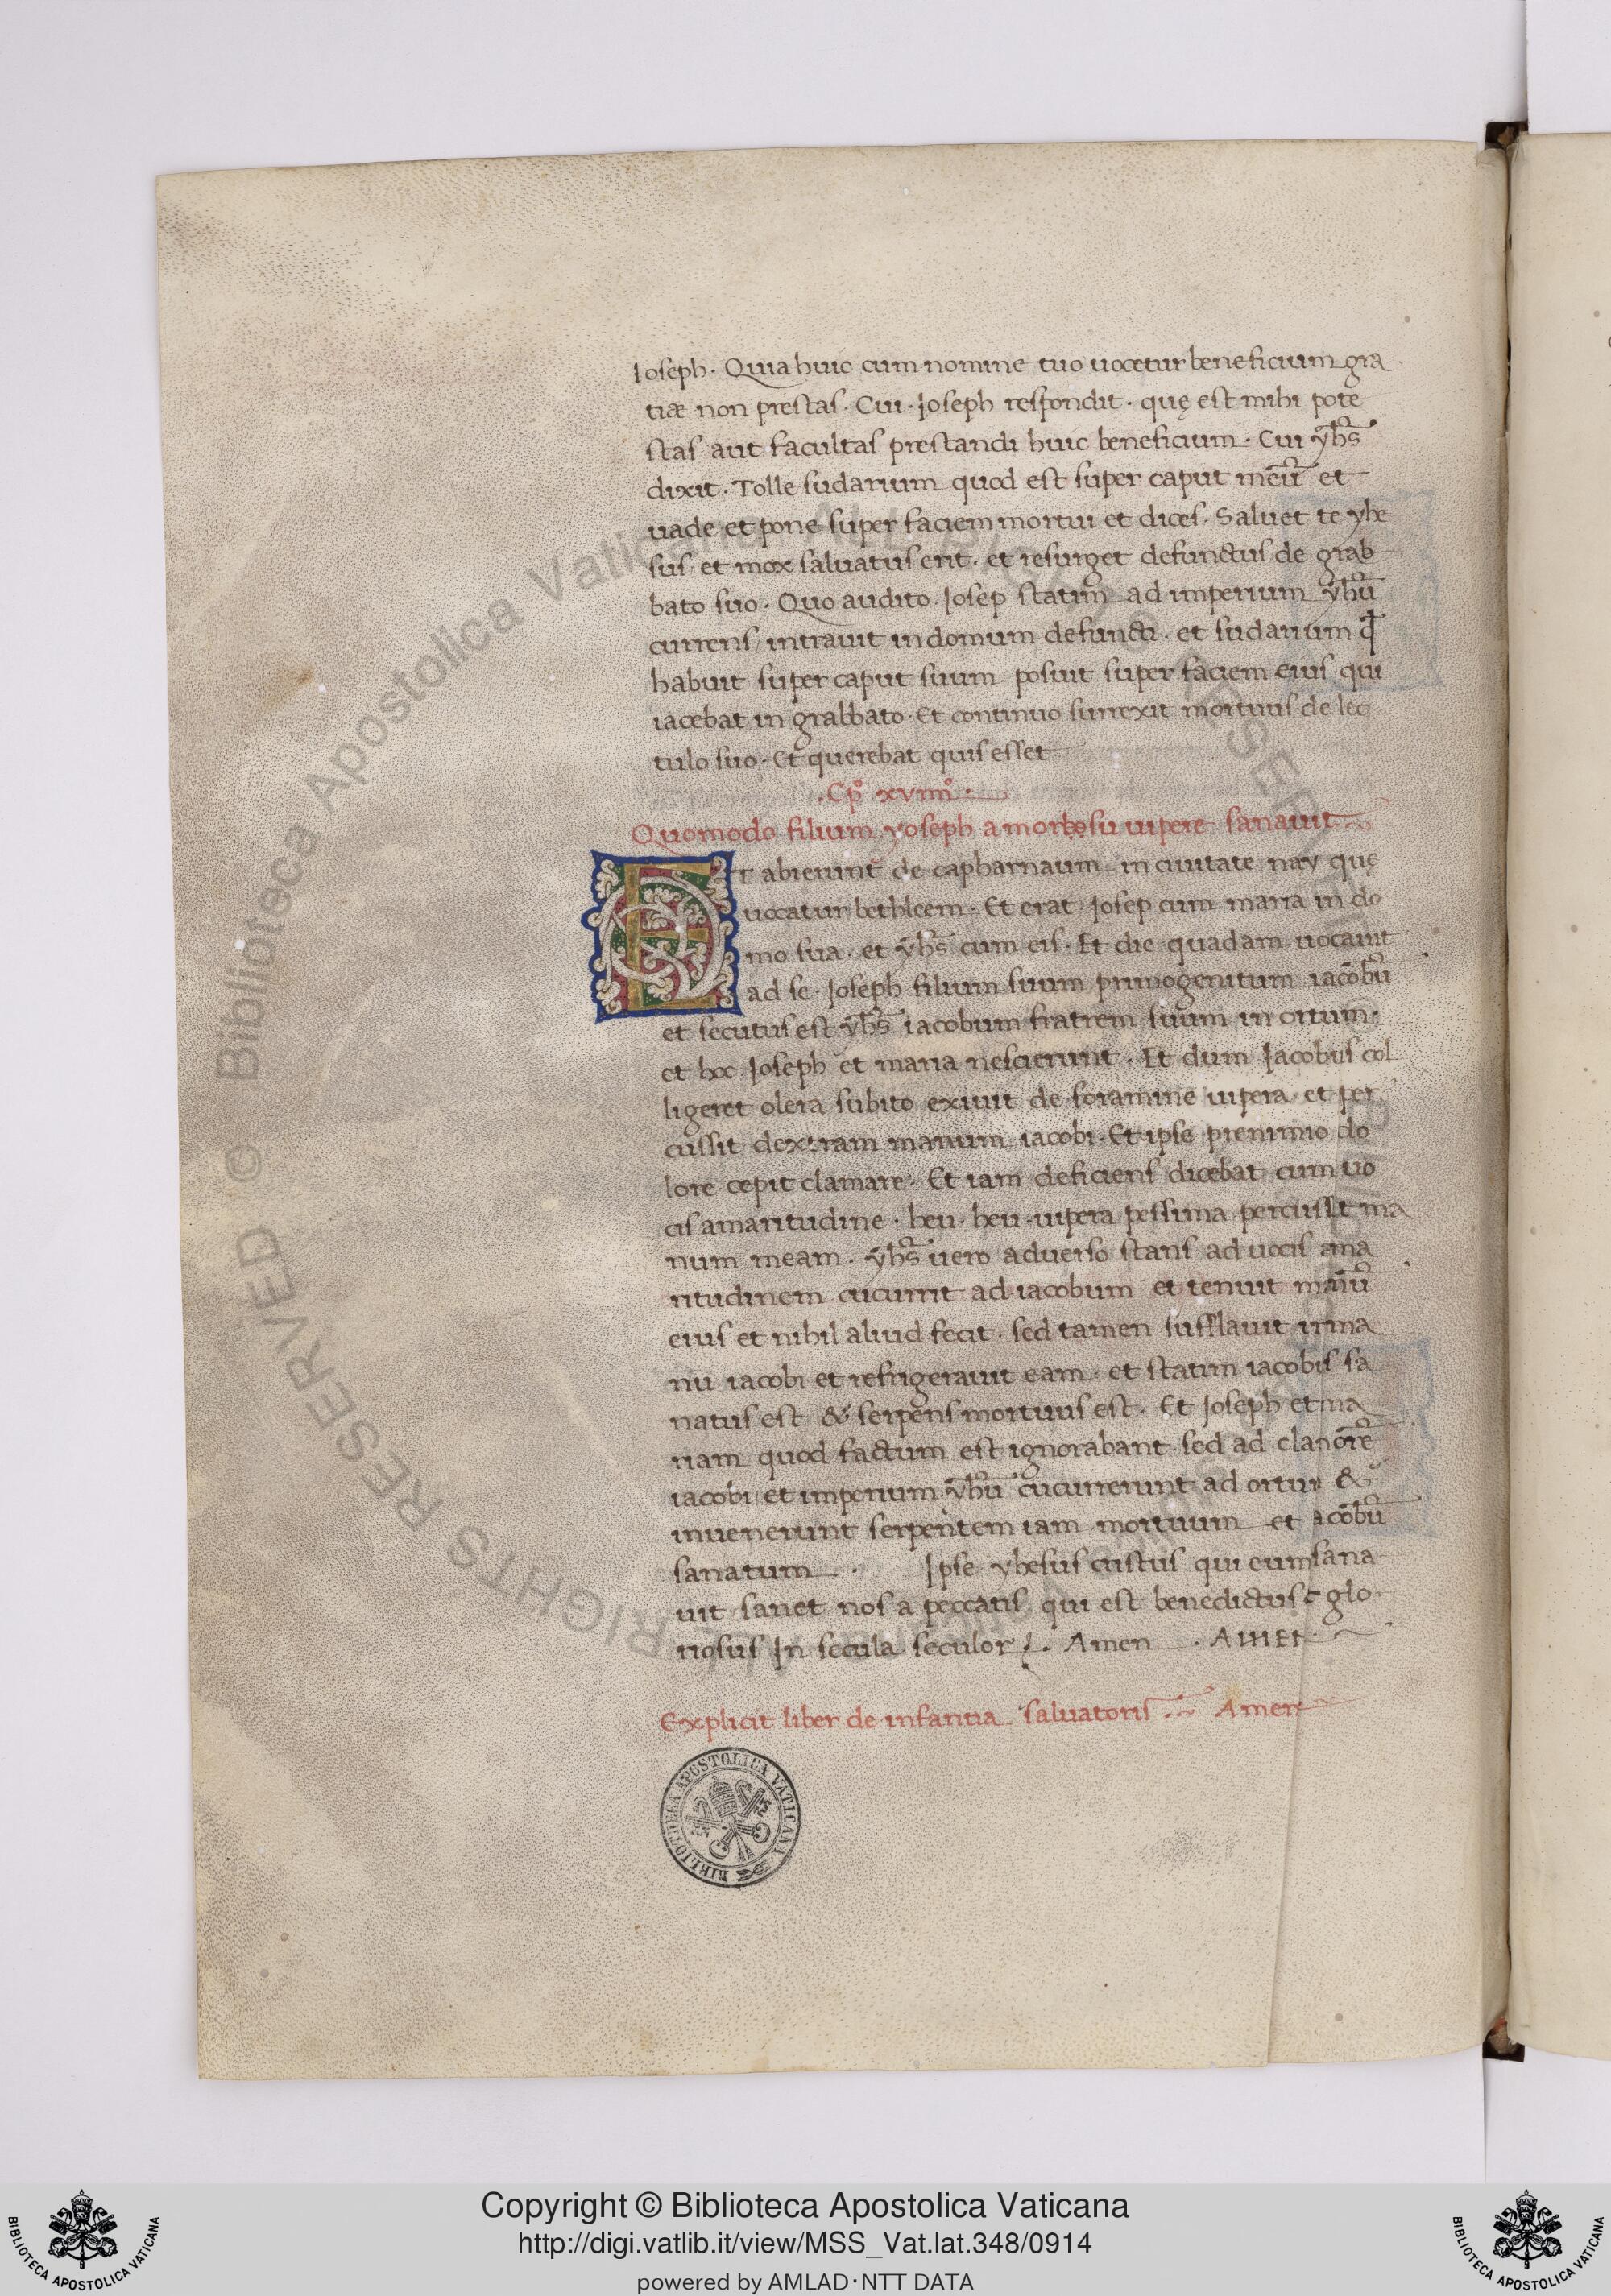 Joseph. Quia huic cum nomine tuo uocetur beneficium gra
tiæ non prestas. Cui. Joseph respondit. quę est mihi pote
stas aut facultas prestandi huic beneficium. Cui yh̄s
dixit. Tolle sudarium quod est super caput meū et
uade et pone super faciem mortui et dices. Saluet te yhe
sus et mox saluatus erit. et resurget defunctus de grab
bato suo. Quo audito. Josep statim ad imperium yh̄u
currens intrauit in domum defuncti. et sudarium
habuit super caput suum posuit super faciem eius qui
iacebat in grabbato. Et continuo surrexit mortuus de lec
tulo suo. Et querebat quis esset
.Cp̄o xviiiio.
Quomodo filium yoseph a morbesu uipere sanauit
ET abierunt de capharnaum in ciuitate nav quę
uocatur bethleem. Et erat Josep cum maria in do
mo sua. et yh̄s cum eis. Et die quadam uocauit
ad se. Joseph filium suum primogenitum iacobū
et secutus est yh̄s iacobum fratrem suum in ortum.
et hoc Joseph et maria nescierunt. Et dum Jacobus col
ligeret olera subito exiuit de foramine uipera et per
cussit dextram manum iacobi. Et ipse prenimio do
lore cepit clamare. Et iam deficiens dicebat cum uo
cis amaritudine. heu. heu. uipera pessima percussit ma
num meam. yh̄s uero aduerso stans ad uocis ama
ritudinem cucurrit ad iacobum et tenuit manū
eius et nihil aliud fecit. sed tamen sufflauit in ma
nu iacobi et refrigerauit eam. et statim iacobus sa
natus est & serpens mortuus est. Et Joseph et ma
riam quod factum est ignorabant. sed ad clamorē
iacobi et imperium yh̄u cucurrerunt ad ortum &
inuenerunt serpentem iam mortuum et iacobū
sanatum. Ipse yhesus cristus qui eum sana
uit sanet nos a peccatis qui est benedictus glo
riosus In secula seculor. Amen. AMEN
Explicit liber de infantia saluatoris. Amen
BIBLIOTHECA APOSTOLICA VATICANA
© Biblioteca Apostolica Vaticana
RIGHTS RESERVED
Copyright © Biblioteca Apostolica Vaticana
http://digi.vatlib.it/view/MSS_Vat.lat.348/0914
powered by AMLAD·NTT DATA
BIBLIOTECA APOSTOLICA VATICANA
BIBLIOTECA APOSTOLICA VATICANA